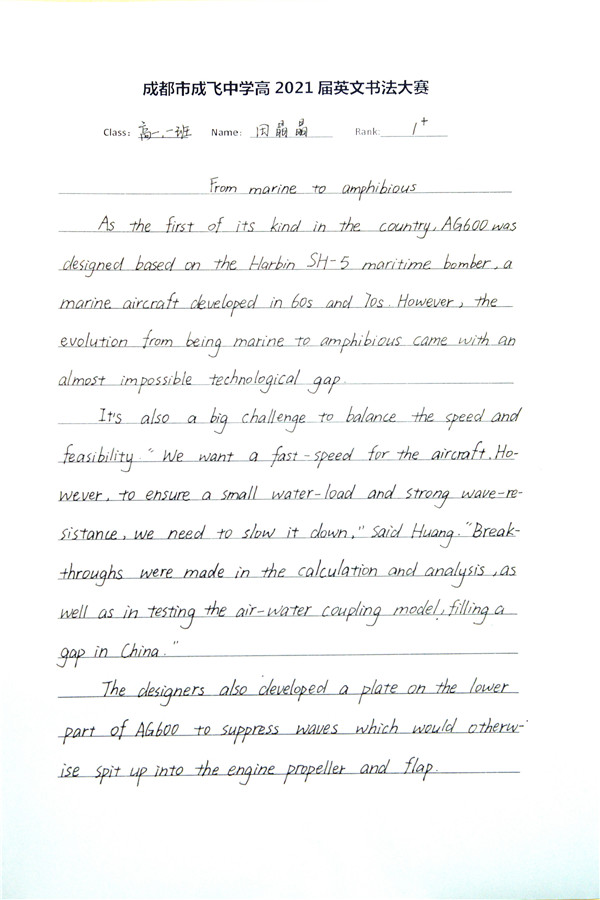 成都市成飞中学高2021届英文书法大赛
Class: 高一.一班 Name: 田晶晶 Rank: 1+
From marine to amphibious
As the first of its kind in the country, AG600 was
designed based on the Harbin SH-5 maritime bomber, a
marine aircraft developed in 60s and 70s. However, the
evolution from being marine to amphibious came with an
almost impossible technological gap.
It's also a big challenge to balance the speed and
feasibility. "We want a fast-speed for the aircraft. Ho-
wever, to ensure a small water-load and strong wave-re-
sistance, we need to slow it down," said Huang. "Break-
throughs were made in the calculation and analysis, as
well as in testing the air-water coupling model, filling a
gap in China."
The designers also developed a plate on the lower
part of AG600 to suppress waves which would otherw-
ise spit up into the engine propeller and flap.